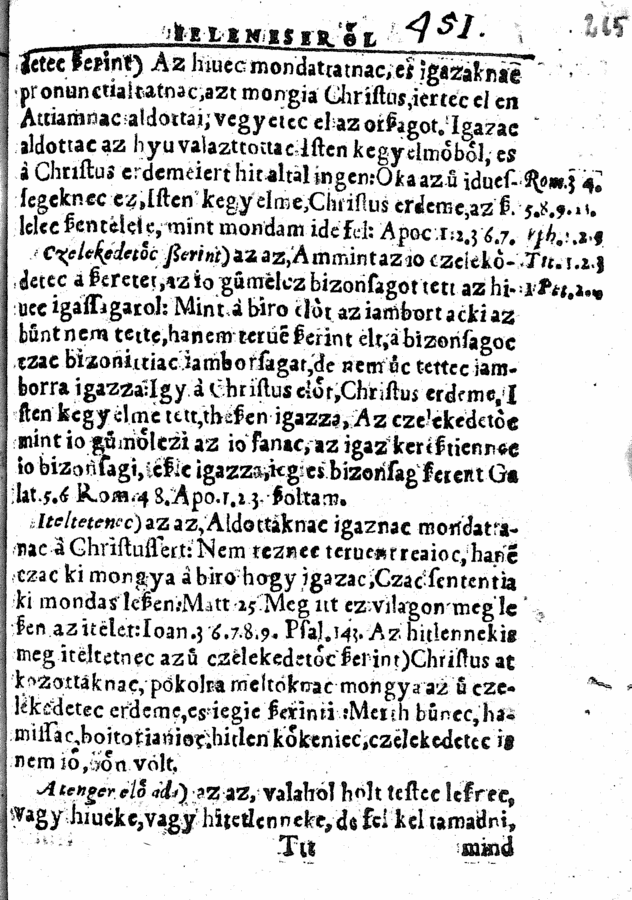 IELENESEKRőL 451. 265
detec ſzerint) Az hiuec mondattatnac, es igazaknac
pronunctialtatnac, azt mongia Chriſtus, iertec el en
Attiamnac aldottai, vegyetec el az orſzagot. Igazac
aldottac az hyu valazttottac Iſten kegyelmőből, es
â Chriſtus erdemeiert hit altal ingen: Oka az ű idueſ- Rom. 3 4.
ſegeknec ez, Iſten kegyelme, Chriſtus erdeme, az ſz. 5.8.9.11.
lelec ſzentelele, mint mondam ide fel: Apoc 1.2.3 6.7.
Czelekedetőc ſzerint) az az, Ammint az io czelekő- Tit. 1.2.3
detec â ſzeretet, az io gűmőlcz bizonſagot tett az hi- 1 Pet. 2.
uec igaſſagarol: Mint â biro előt az iambort acki az
bűnt nem tette, hanem teruē ſzerint elt, a bizonſagoc
czac bizonittiac iamborſagat, de nem űc tettec iam-
borra igazza: Igy â Chriſtus előt, Chriſtus erdeme, I
ſten kegyelme tett, theſzen igazza, Az czelekedetőc
mint io gűmőlczi az io fanac, az igaz kereſztiennec
io bizonſagi, igazza, iegi es bizonſag ſzerent Ga
lat. 5.6 Rom. 4 8. Apo. 1.2.3. ſzoltam.
Iteltetenec) az az, Aldottaknac igaznac mondatta-
nac â Chriſtuſſert: Nem teznec teruent reaioc, hanē
czac ki mongya â biro hogy igazac, Czac ſententia
ki mondas leſzen: Matt 25. Meg itt ez vilagon meg le
ſzen az itelet: Ioan. 3 6.7.8.9. Pſal. 143. Az hitlennekis
meg iteltetnec az ű czelekedetőc ſzerint) Chriſtus at
kozottaknac, pokolra meltoknac mongya az ű cze-
lekedetec erdeme, es iegie ſzerinti: Merth bűnec, ha-
miſſac, hitlen kőkeniec, czelekedetec is
nem io, volt.
A tenger elő ada) az az, valahol holt teſtec leſznec,
vagy hiueke, vagy hitetlenneke, de fel kel tamadni,
Ttt mind